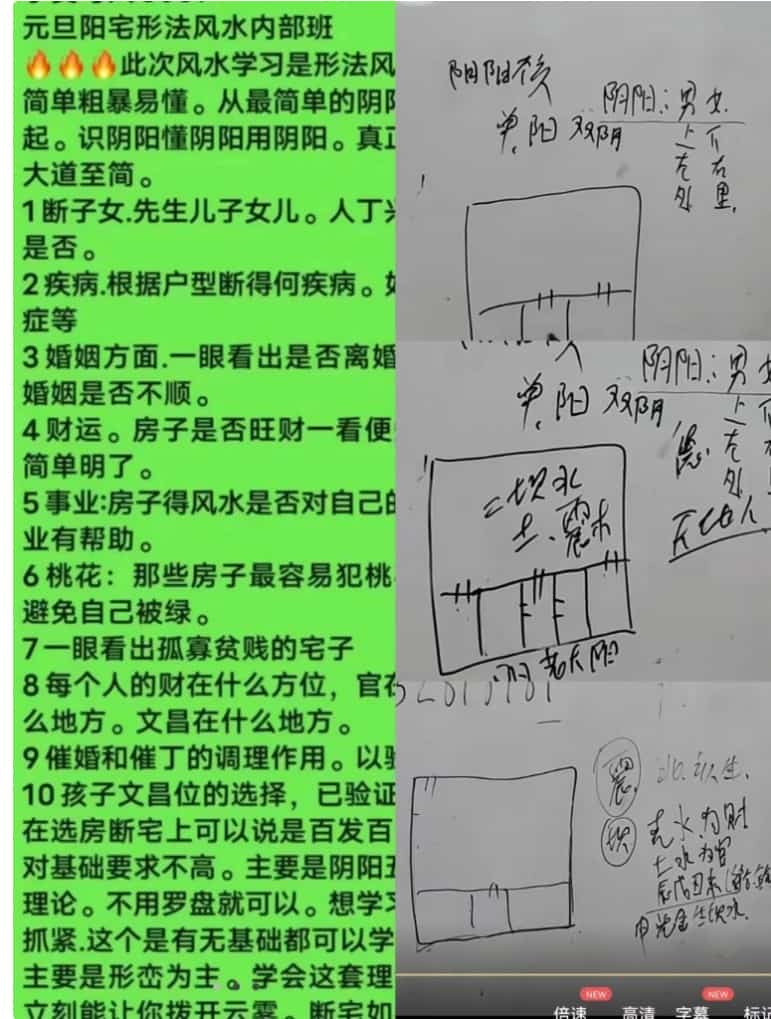 元旦阳宅形法风水内部班
🔥🔥🔥此次风水学习是形法风
简单粗暴易懂。从最简单的阴阳
起。识阴阳懂阴阳用阴阳。真正
大道至简。
1断子女.先生儿子女儿。人丁兴
是否。
2疾病.根据户型断得何疾病。如
症等
3婚姻方面.一眼看出是否离婚
婚姻是否不顺。
4财运。房子是否旺财一看便
简单明了。
5事业:房子得风水是否对自己的
业有帮助。
6桃花：那些房子最容易犯桃
避免自己被绿。
7一眼看出孤寡贫贱的宅子
8每个人的财在什么方位，官在
么地方。文昌在什么地方。
9催婚和催丁的调理作用。以验
10孩子文昌位的选择，已验证
在选房断宅上可以说是百发百
对基础要求不高。主要是阴阳五
理论。不用罗盘就可以。想学习
抓紧.这个是有无基础都可以学
主要是形峦为主。学会这套理
立刻能让你拨开云雾。断宅如
阴阳
阴阳：男女
单.阳 双阴
上下
左右
外里
阴阳：男女
单.阳 双阴
上
左
外
二坎水
土.震木
震
坎
水为财
土 为官
NEW
NEW
倍速
高清
字幕
标记